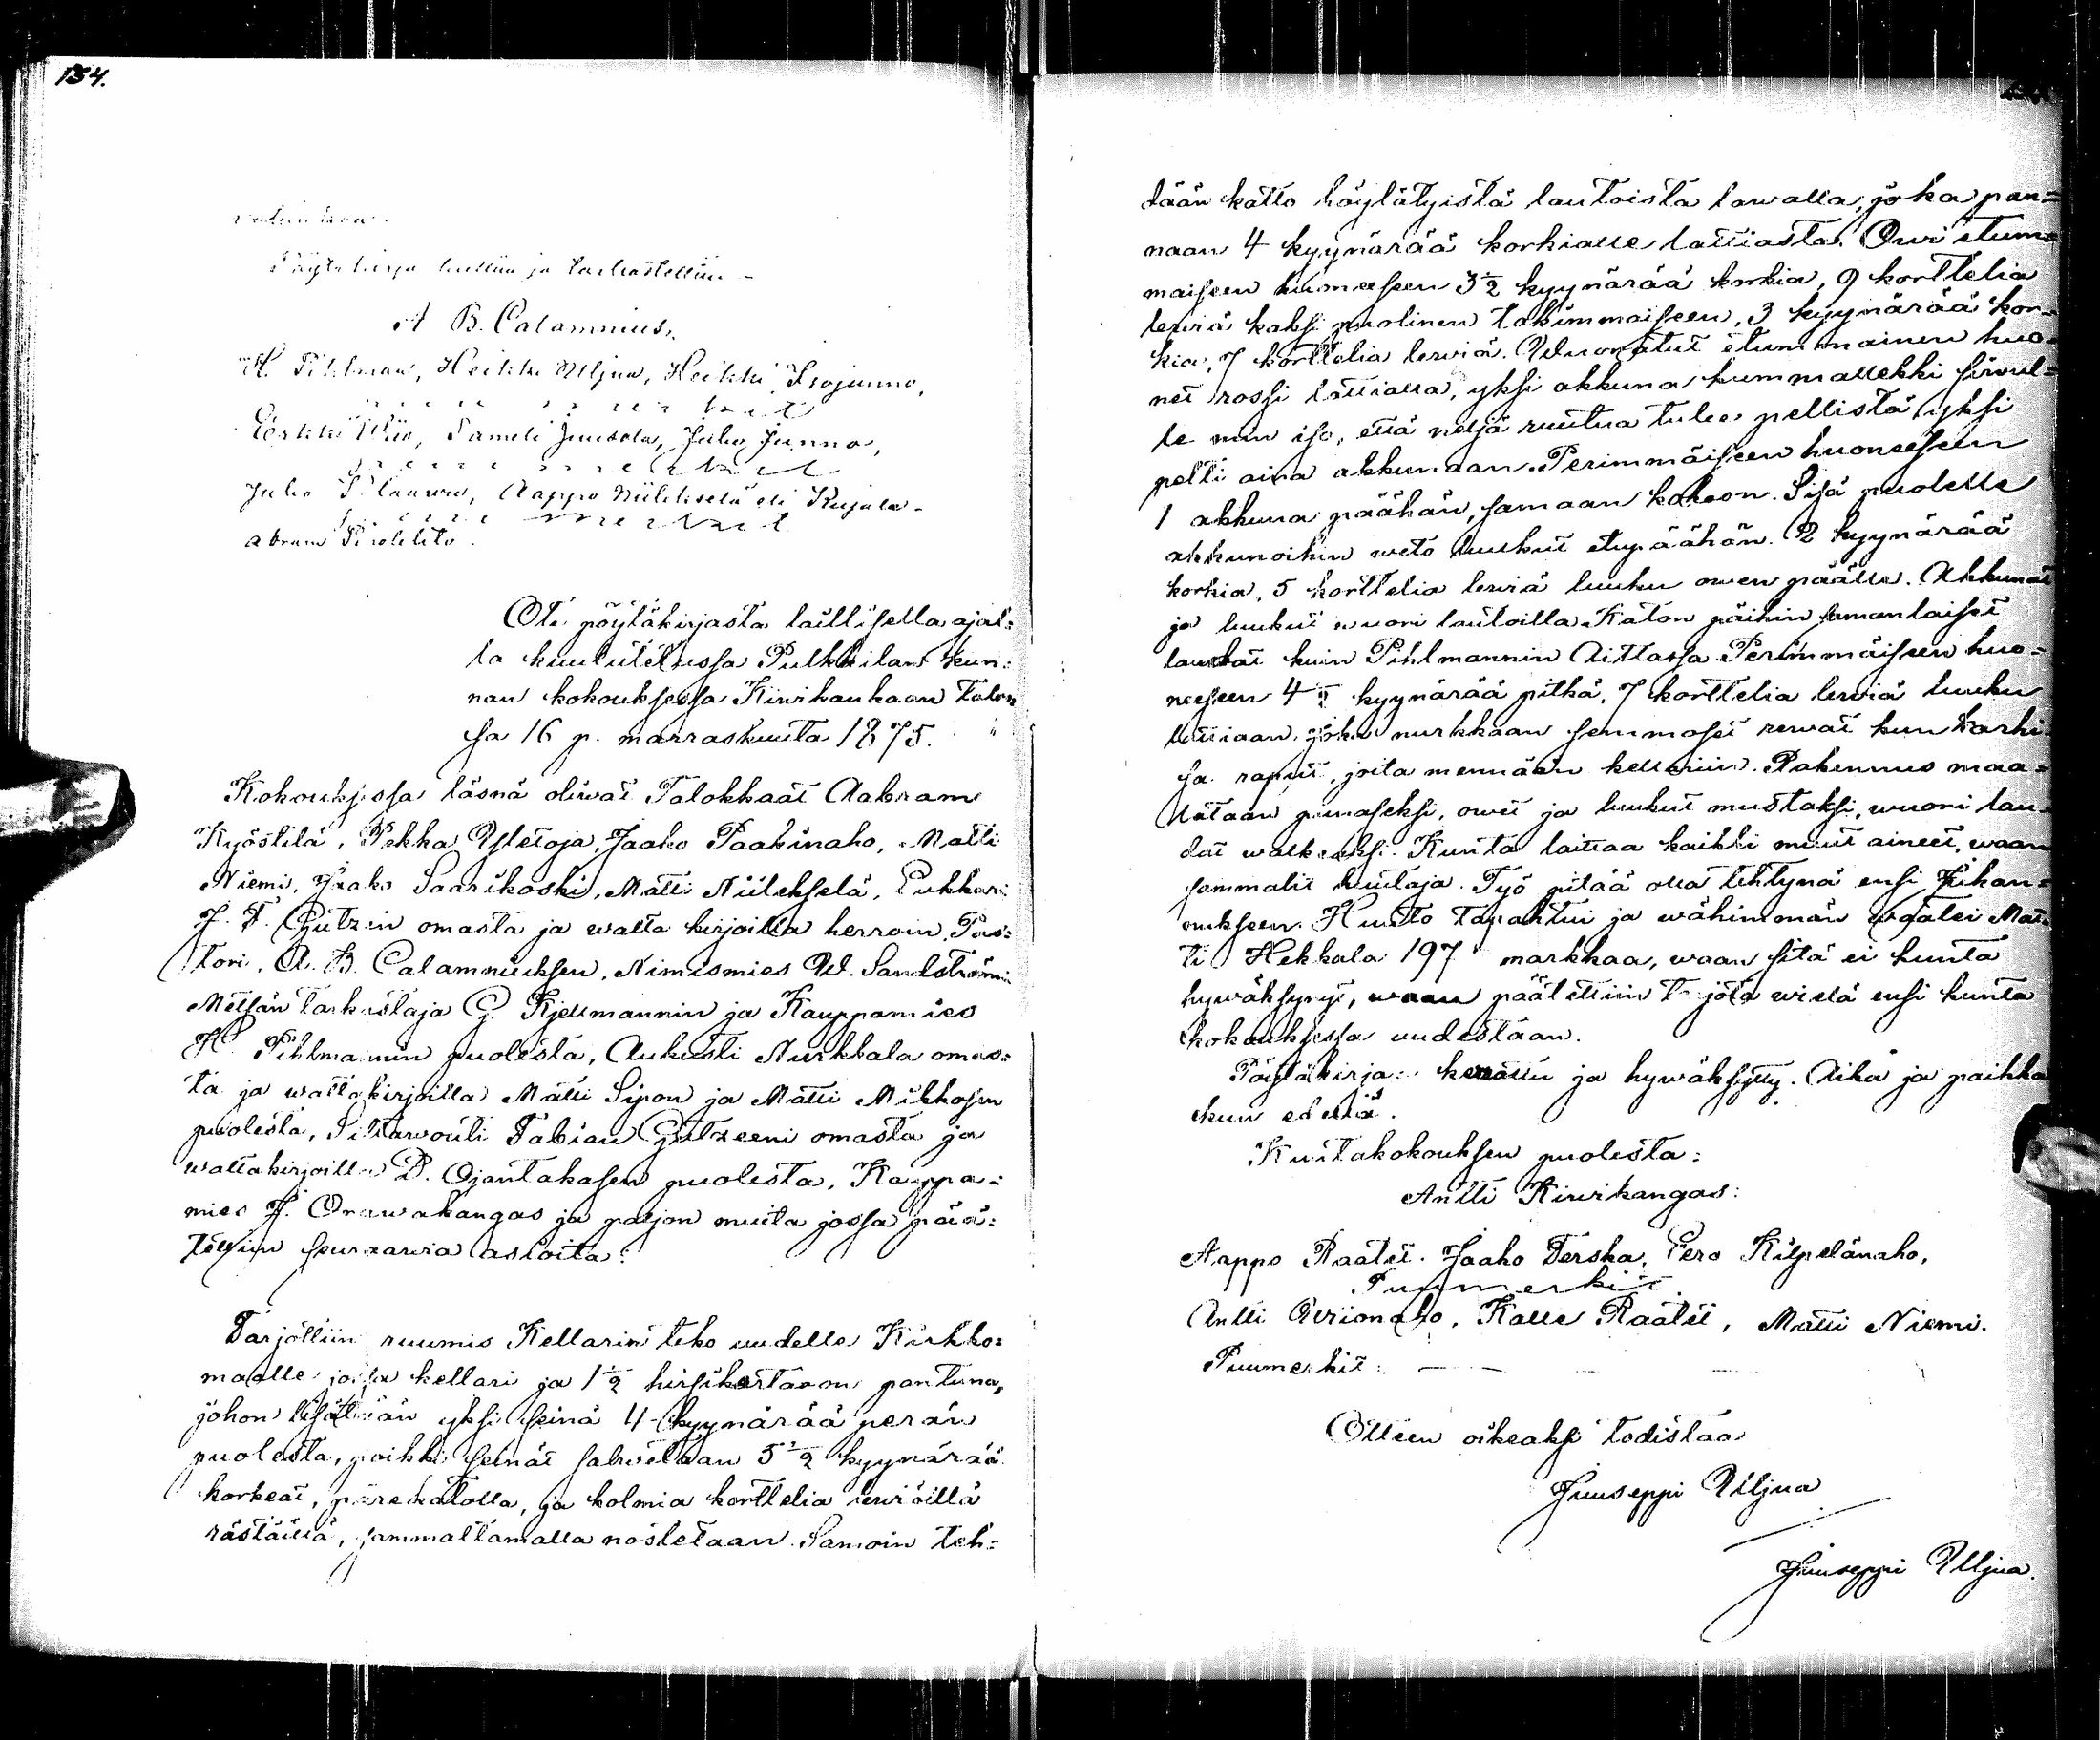 134.
Pöytäkirja luettiin ja tarkastettiin -
A B. Calamnius.
H. Pihlman, Heikki Uljua, Heikki Isojunno,
Eerkki Wiio, Sameli Juusola, Juho Junno,
Juho Aappo Niilekselä eli Kujala -
abram
Ote pöytäkirjasta laillisella ajal=
la kuulutetussa Pulkkilan kun=
nan kokouksessa Kiwikankaan talos
sa 16 p. marraskuuta 1875.
Kokouksessa läsnä oliwat Talokkaat Aabram
Kyöstilä, Pekka Ylctoja, Jaako Paakinaho, Matti
Niemi, Jaako Saarikoski, Matti Niilekselä, Lukkari
J. F. Gutzén omasta ja walta kirjoilla herrain Pas=
tori, A. B. Calamniuksen, Nimismies W. Sandströmin
Metsän tarkastaja G. Kjellmannin ja Kauppamies
H. Pihlmannin puolesta, Aukusti Nurkkala omas=
ta ja waltakirjoilla Matti Sipon ja Matti Mikkosen
puolesta, Siltawouti Fabian Gutzeeni omasta ja
waltakirjoilla P. Ojantakasen puolesta, Kauppa=
mies J. Orawakangas ja paljon muita jossa pää=
tettiin seuraawia asioita:
Tarjottiin ruumis Kellarin teko uudelle Kirkko=
maalle jossa kellari ja 1 1/2 hirsikertaan pantuna,
johon lisätään yksi seinä 4 kyynärää perän
puolesta, poikki seinät salwetaan 5 1/2 kyynärää
korkeat, pärekatolla, ja kolmia korttelia lewiöillä
rästäillä, sammaltamalla nostetaan. Samoin teh=
dään katto höylätyistä lautoista lawalla, joka pan=
naan 4 kyynärää korkialle lattiasta. Owi etum=
maiseen huoneeseen 3 1/2 kyynärää korkia, 9 korttelia
lewiä kaksi puolinen takimmaiseen, 3 kyynärää kor=
kia, 7 korttelia lewiä. Wuoratut etummainen huo=
net rossi lattialla, yksi akkuna kummallekki siwul=
le niin iso, että neljä ruutua tulee pellistä yksi
pelti aina akkunaan. Perimmäiseen huoneeseen
1 akkuna päähän, samaan kokoon. Sisä puolelle
akkunoihin weto luukut etupäähän. 2 kyynärää
korkia, 5 korttelia lewiä luuku owen päälle. Akkunat
ja luukut wuori lautoilla Katon päihin samanlaiset
laudat kuin Pihlmannin Aittassa. Perimmäiseen huo=
neeseen 4 kyynärää pitkä, 7 korttelia lewiä luuku
lattiaan, joka nurkkaan semmoset kun
ja raput, joita mennään kellariin. Rakennus maa=
lataan punaseksi, owet ja luukut mustaksi, wuori lau
dat walkeaksi. Kunta laittaa kaikki muut aineet, waan
sammalit huutaja. Työ pitää olla tehtynä ensi Juhan=
nukseen. Huuto tapahtui ja wähimmän waatei Mat=
ti Hekkala 197 markkaa, waan sitä ei kunta
hywäksynyt, waan päätettiin tarjota wielä ensi kunta
kokouksessa uudestaan.
Pöytäkirja: kerattu ja hywäksytty. Aika ja paikka
kun edellä.
Kuntakokouksen puolesta:
Antti Kiwikangas:
Aappo Räätäli. Jaako Terska, Eero Kilpelänaho,
Puumerkit
Antti Ariionaho, Kalle Räätäli, Matti Niemi.
Puumerkit:
Otteen oikeaksi todistaa
Juuseppi Uljua
Juuseppi Uljua.